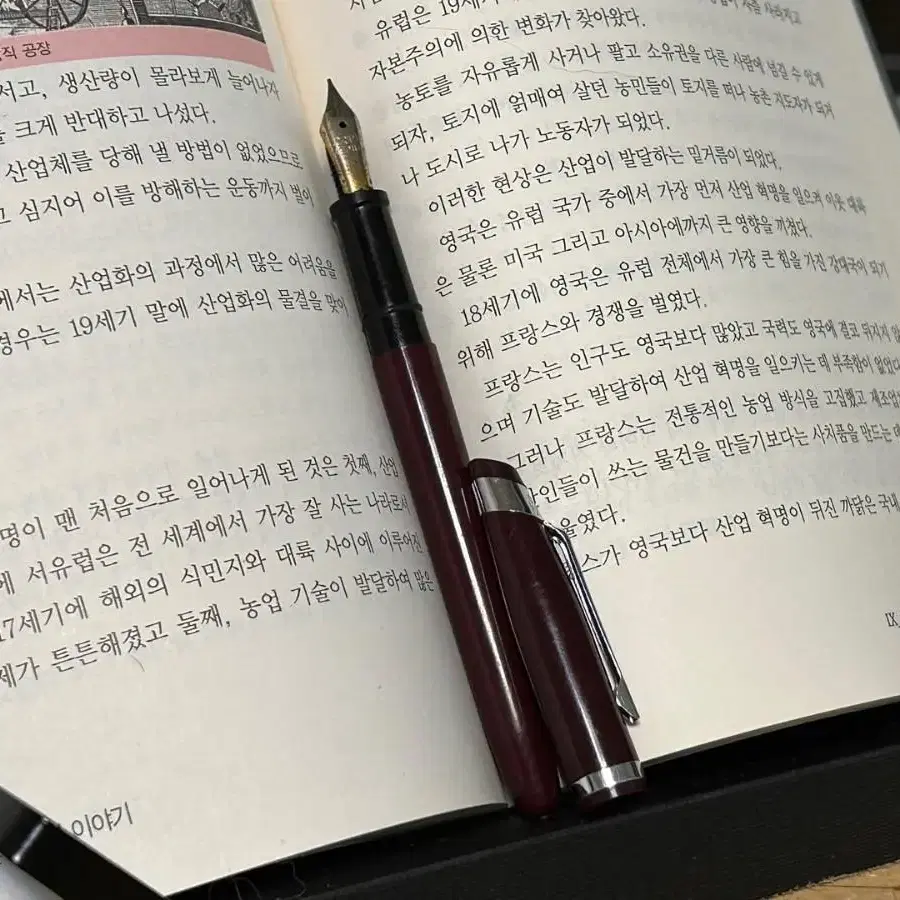 직 공장
서고, 생산량이 몰라보게 늘어나자
크게 반대하고 나섰다.
산업체를 당해 낼 방법이 없었으므로
고 심지어 이를 방해하는 운동까지 벌이
에서는 산업화의 과정에서 많은 어려움을
경우는 19세기 말에 산업화의 물결을 맞이
명이 맨 처음으로 일어나게 된 것은 첫째, 산업
에 서유럽은 전 세계에서 가장 잘 사는 나라로서
17세기에 해외의 식민지와 대륙 사이에 이루어진
제가 튼튼해졌고 둘째, 농업 기술이 발달하여 많은
이야기
유럽은 19세기
자본주의에 의한 변화가 찾아왔다.
농토를 자유롭게 사거나 팔고 소유권을 다른 사람에 넘길 수 있게
되자, 토지에 얽매여 살던 농민들이 토지를 떠나 농촌 지도자가 되거
나 도시로 나가 노동자가 되었다.
이러한 현상은 산업이 발달하는 밑거름이 되었다.
영국은 유럽 국가 중에서 가장 먼저 산업 혁명을 일으며 이웃
은 물론 미국 그리고 아시아에까지 큰 영향을 끼쳤다.
18세기에 영국은 유럽 전체에서 가장 큰 힘을 가진 강대국이 되기
위해 프랑스와 경쟁을 벌였다.
프랑스는 인구도 영국보다 많았고 국력도 영국에 결코 뒤지지 않
으며 기술도 발달하여 산업 혁명을 일으키는 데 부족함이 없었다
그러나 프랑스는 전통적인 농업 방식을 고집했고 제조업
인들이 쓰는 물건을 만들기보다는 사치품을 만드는 데
을였다.
스가 영국보다 산업 혁명이 뒤진 까닭은 국내
IX